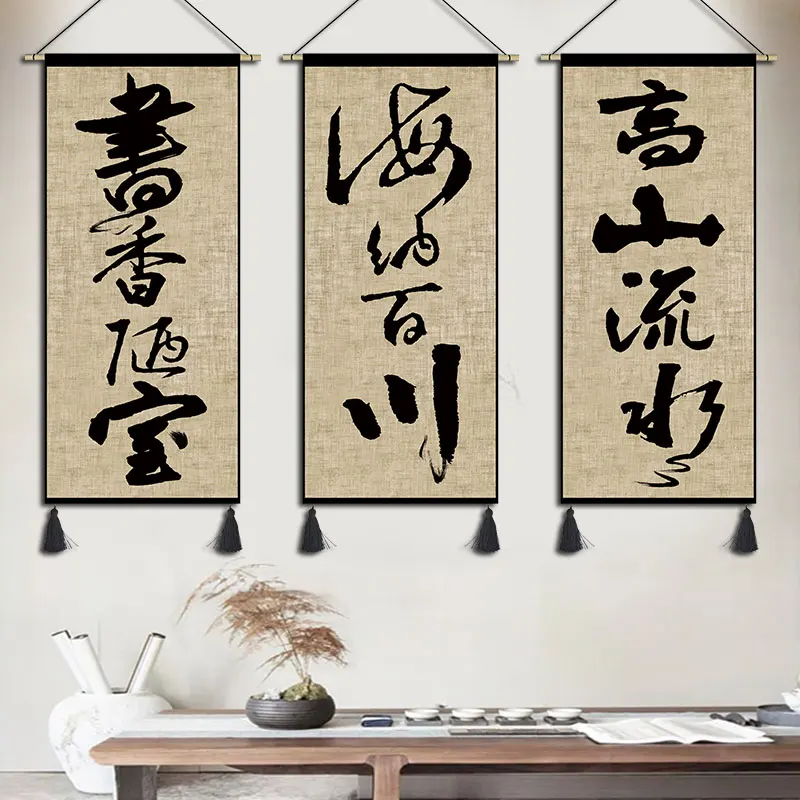 書香陋室
海納百川
高山流水